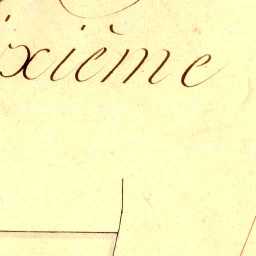 ixième